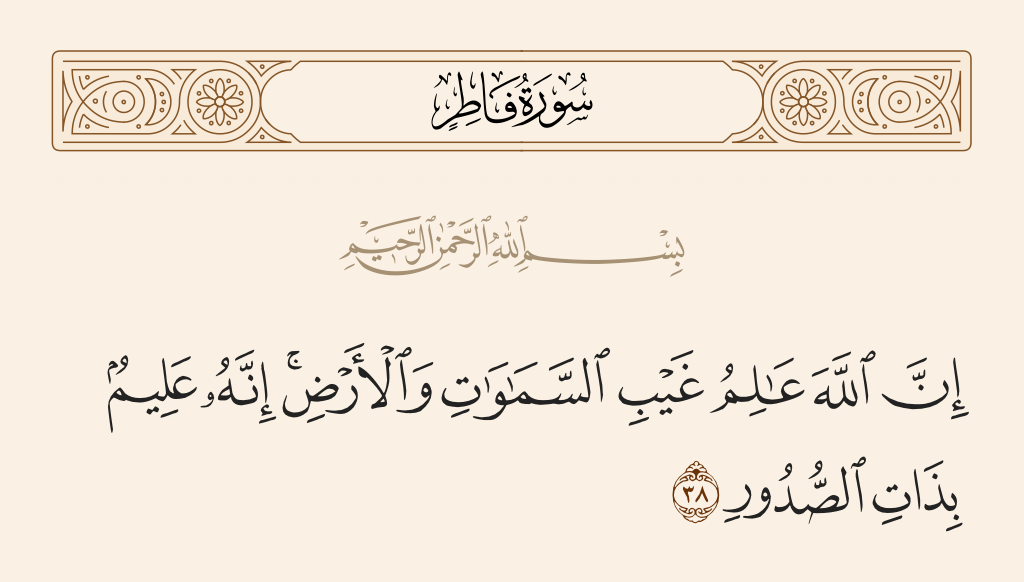 سُورَةُ فَاطِرٍ
بِسْمِ ٱللَّهِ ٱلرَّحْمَٰنِ ٱلرَّحِيمِ
إِنَّ ٱللَّهَ عَٰلِمُ غَيْبِ ٱلسَّمَٰوَٰتِ وَٱلْأَرْضِ ۚ إِنَّهُۥ عَلِيمٌۢ
بِذَاتِ ٱلصُّدُورِ ٣٨